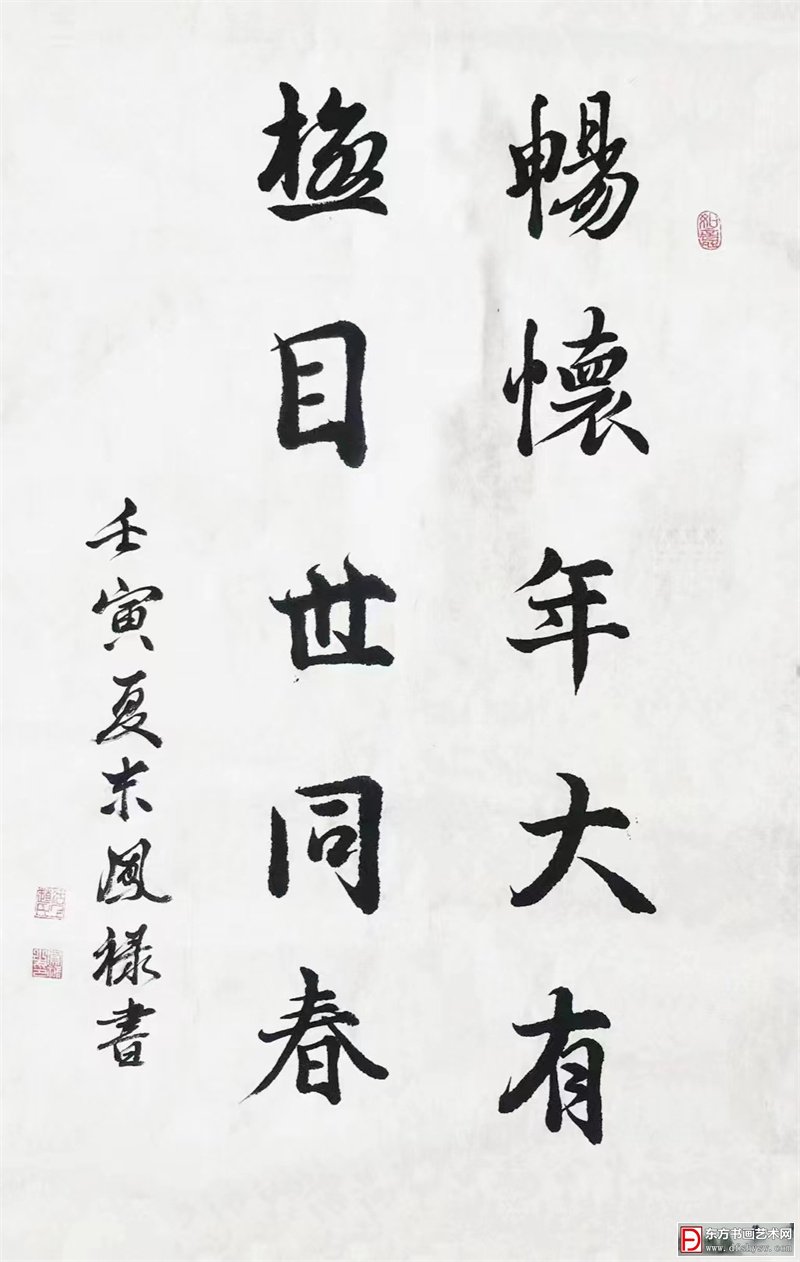 暢懷年大有
極目世同春
壬寅夏末鳳禄書
东方书画艺术网
www.dfshysw.com